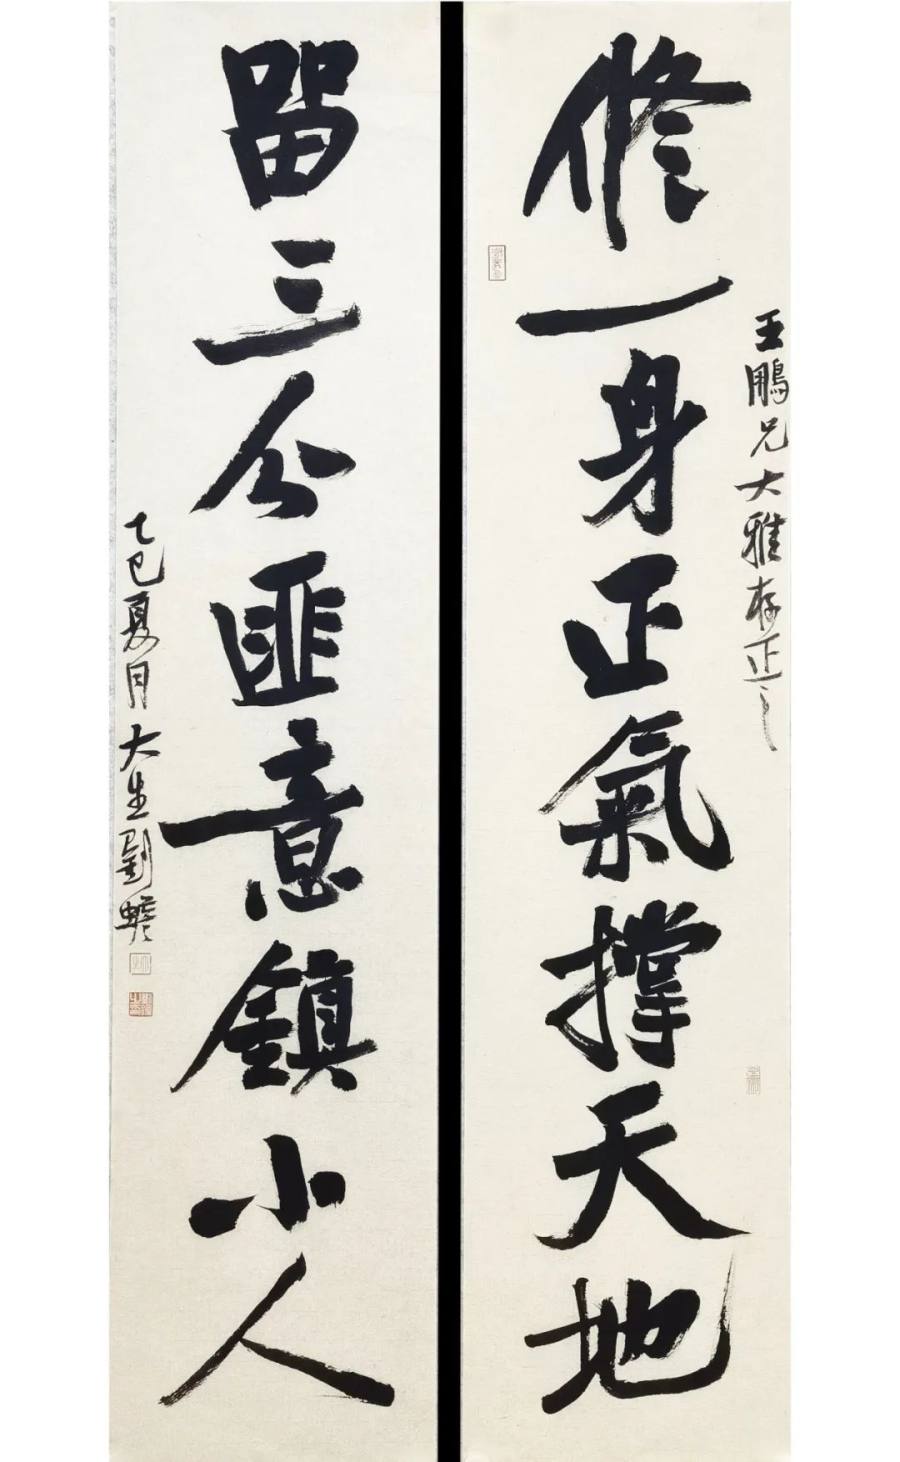 王鵬兄大雅存正之
修一身正氣撐天地
留三分匪意鎮小人
乙巳夏月大生劉蟾